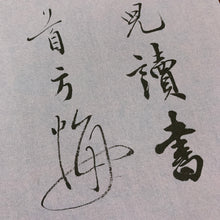 見讀書
首方悔